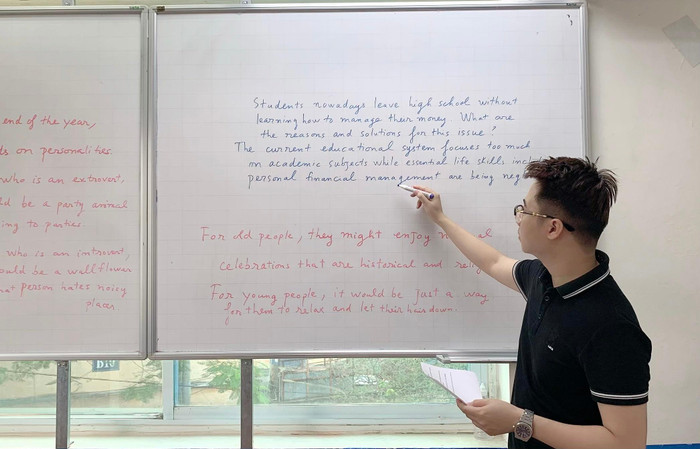 end of the year,
on personalities.
who is an extrovert,
be a party animal
to parties.
who is an introvert,
would be a wallflower
that person hates noisy
places
Students nowadays leave high school without
learning how to manage their money. What are
the reasons and solutions for this issue?
The current educational system focuses too much
on academic subjects while essential life skills
personal financial management are being
For old people, they might enjoy
celebrations that are historical and
For young people, it would be just a way
for them to relax and let their hair down.
D10